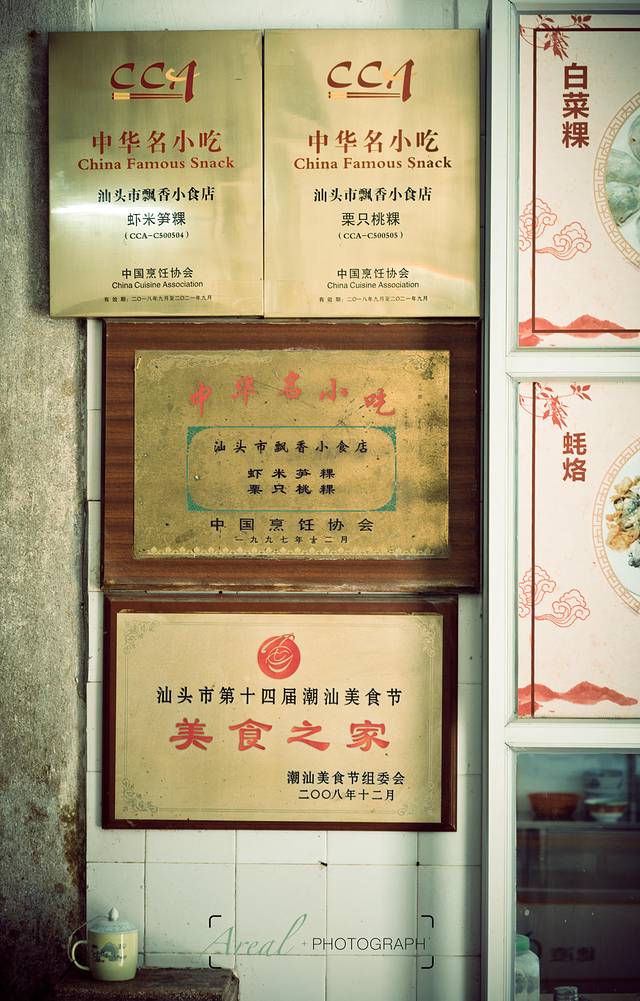 CCA
中华名小吃
China Famous Snack
汕头市飘香小食店
虾米笋粿
(CCA-C500504)
中国烹饪协会
China Cuisine Association
有效期：二〇一八年九月至二〇二一年九月
CCA
中华名小吃
China Famous Snack
汕头市飘香小食店
栗只桃粿
(CCA-C500505)
中国烹饪协会
China Cuisine Association
有效期：二〇一八年九月至二〇二一年九月
中华名小吃
汕头市飘香小食店
虾米笋粿
栗只桃粿
中国烹饪协会
一九九七年十二月
汕头市第十四届潮汕美食节
美食之家
潮汕美食节组委会
二〇〇八年十二月
白菜粿
蚝烙
Areal + PHOTOGRAPH